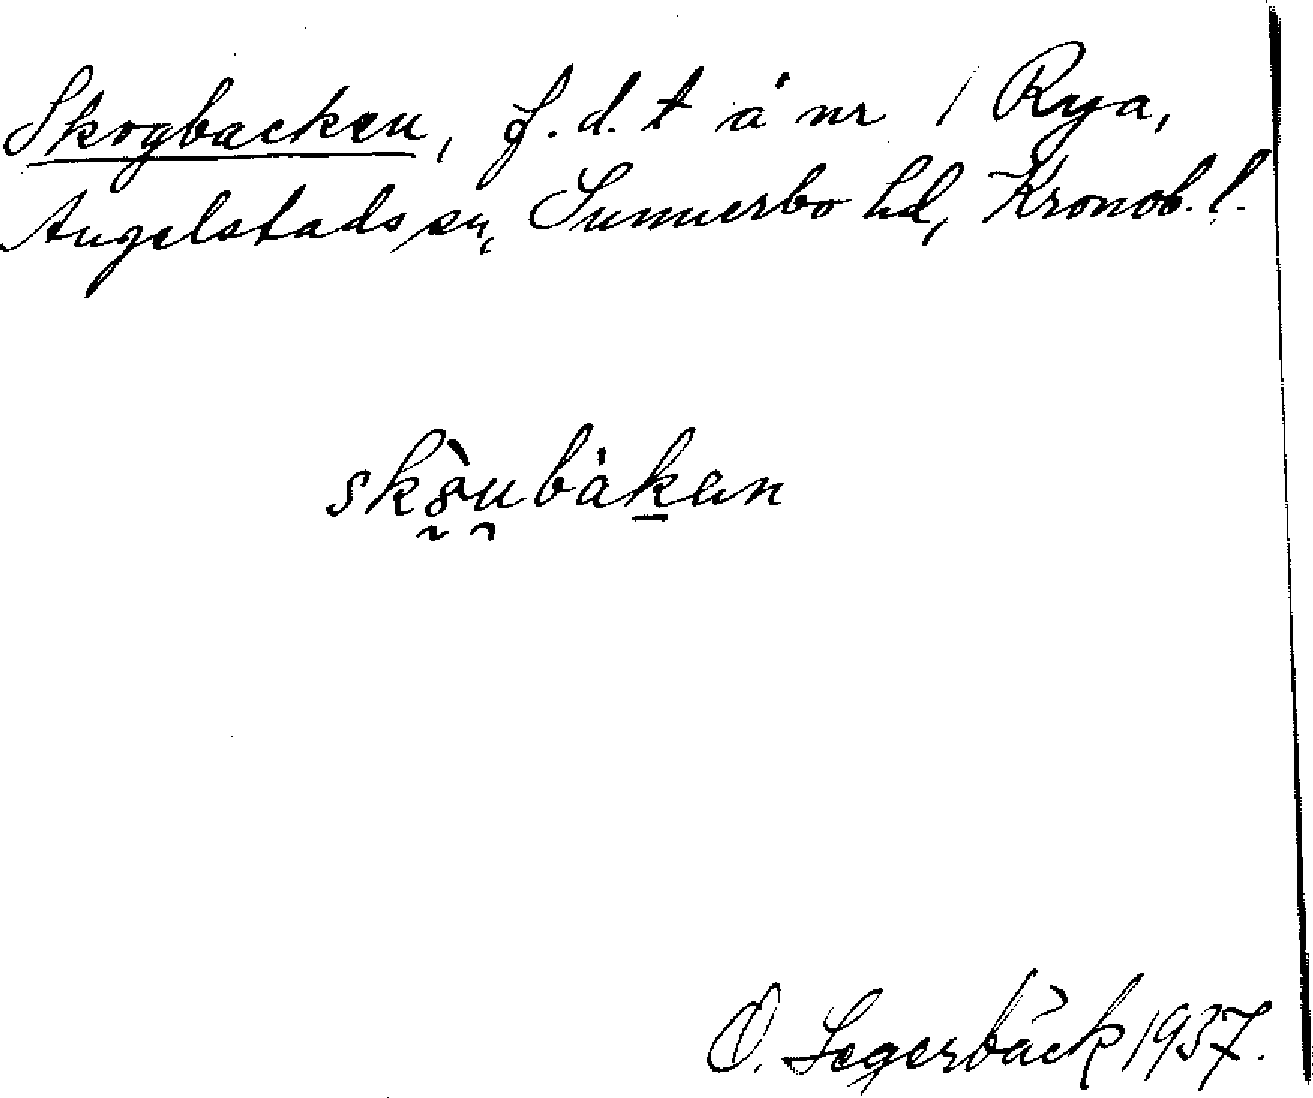 Skogbacken, f.d. t å nr 1 Rya,
Angelstads sn, Sunnerbo hd, Kronob. l.
skòu̯bàk̠ən
O. Segerbäck 1937.